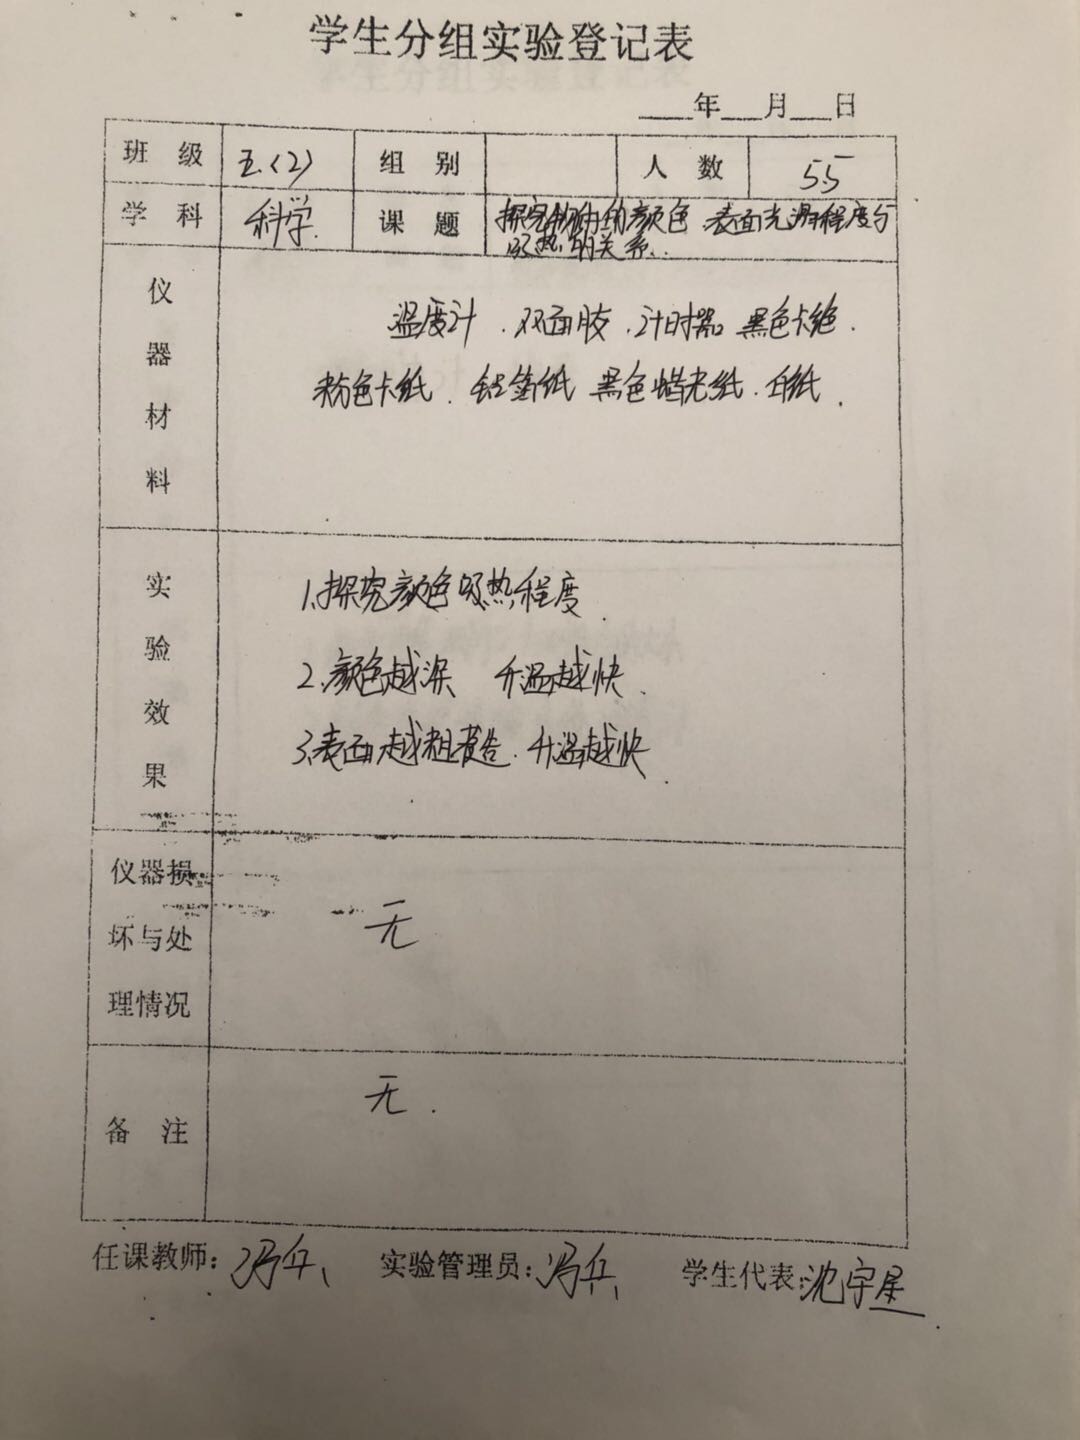 学生分组实验登记表
___年___月___日
班 级 五.(2) 组 别 人 数 55
学 科 科学. 课 题 探究物体的颜色、表面光滑程度与
吸热的关系.
仪器材料
温度计、双面胶、计时器 黑色卡纸、
粉色卡纸、铝箔纸 黑色蜡光纸、白纸.
实验效果
1.探究颜色吸热程度.
2.颜色越深 升温越快.
3.表面越粗糙. 升温越快.
仪器损
坏与处 无
理情况
备 注 无.
任课教师:冯兵、 实验管理员:冯兵、 学生代表:沈宇